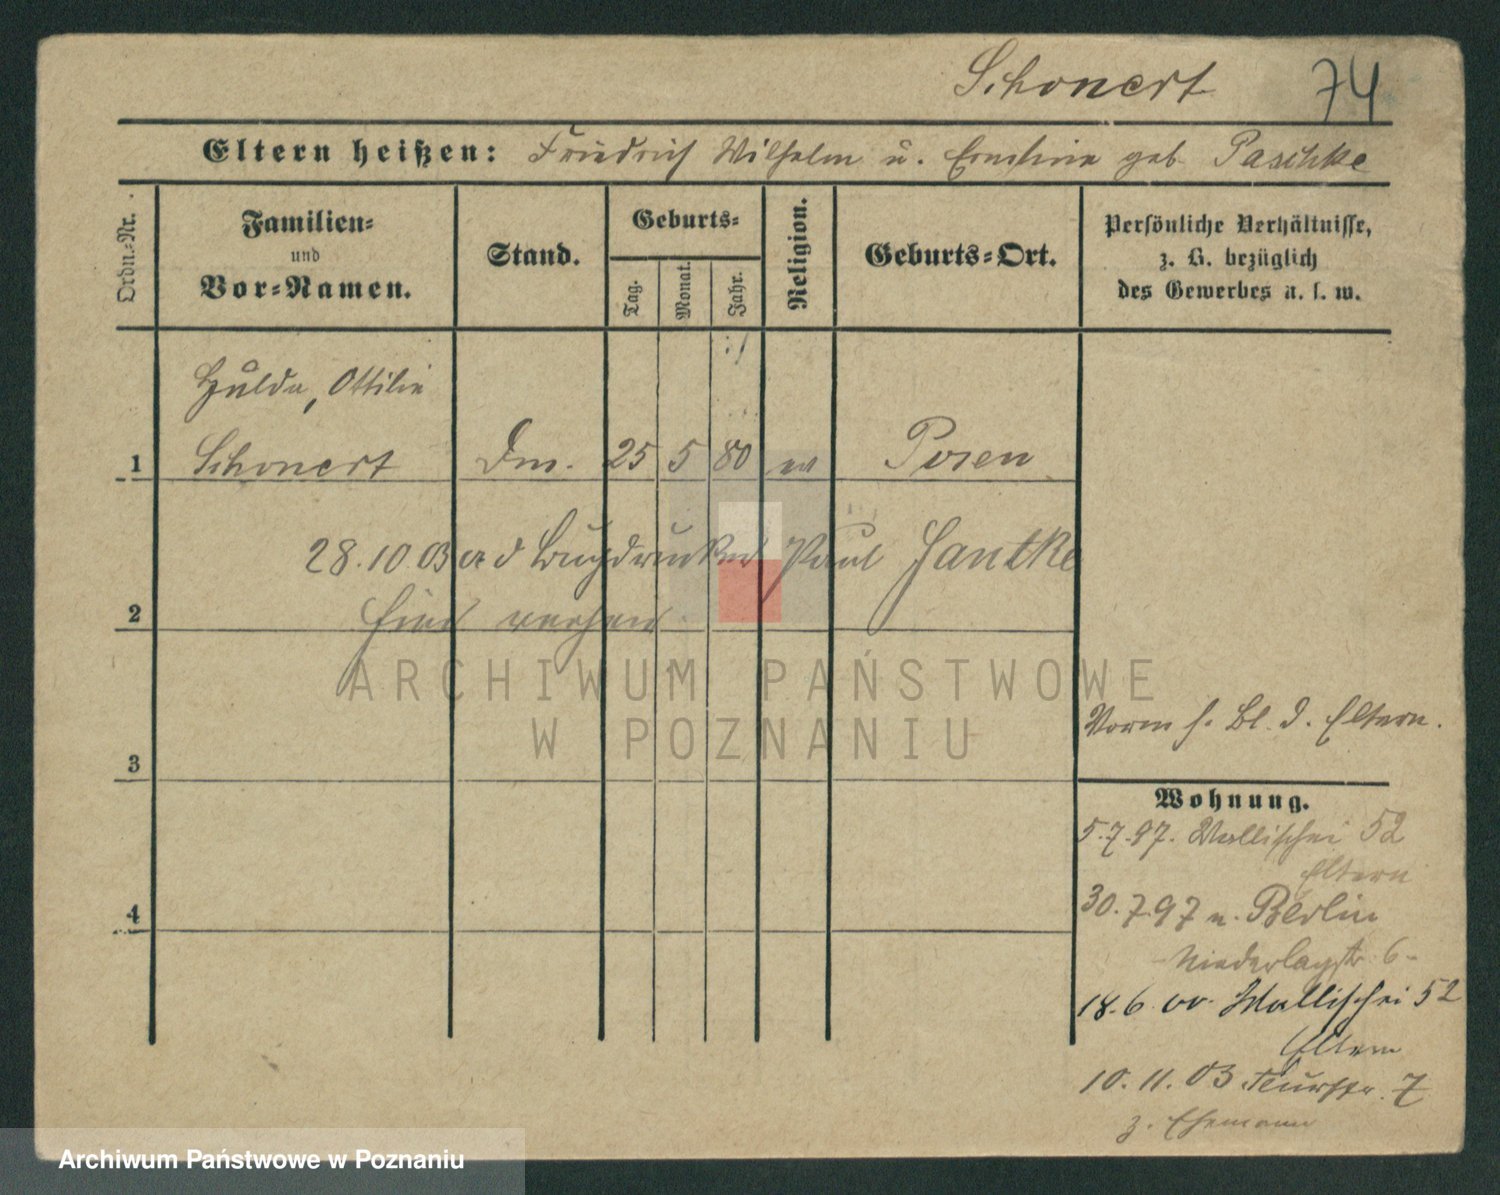 Schonert 74
Eltern heißen: Friedrich Wilhelm u. Ernestine geb. Paschke
Ordn.-Nr.
Familien-
und
Vor-Namen.
Stand.
Geburts-
Tag.
Monat.
Jahr.
Religion.
Geburts-Ort.
Persönliche Verhältnisse,
z. B. bezüglich
des Gewerbes u. s. w.
Hulda, Ottilie
1 Schonert 25 5 80 ev Posen
28.10 03 Buchdrucker Paul Jantke
2
ARCHIWUM PAŃSTWOWE
W POZNANIU
Vorm s. Bl. d. Eltern.
3
Wohnung.
5.7.97. Wallischei 52
Eltern
30.7.97 n. Berlin
4
Niederlagstr. 6
18.6.00. Wallischei 52
Eltern
10.11.03 7
z. Ehemann
Archiwum Państwowe w Poznaniu